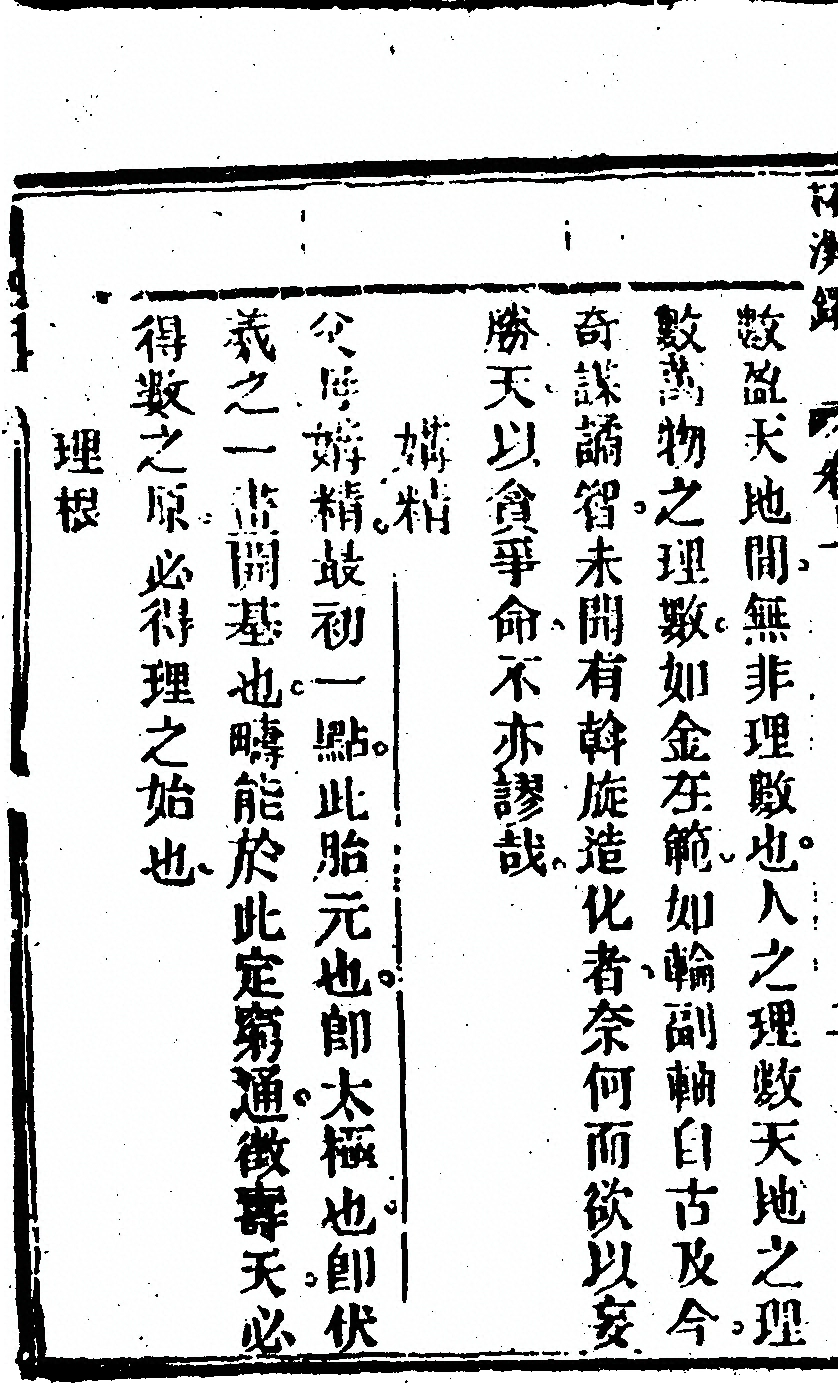 數盈天地間。無非理數也。人之理數天地之理
數萬物之理數。如金在範。如輪副軸自古及今。
奇謀譎智。未聞有斡旋造化者。奈何而欲以妄
勝天。以貪爭命。不亦謬哉。
媾精
父母媾精。最初一點。此胎元也。卽太極也。卽伏
羲之一畫開基也。疇能於此定窮通。徵壽夭。必
得數之原。必得理之始也。
理根